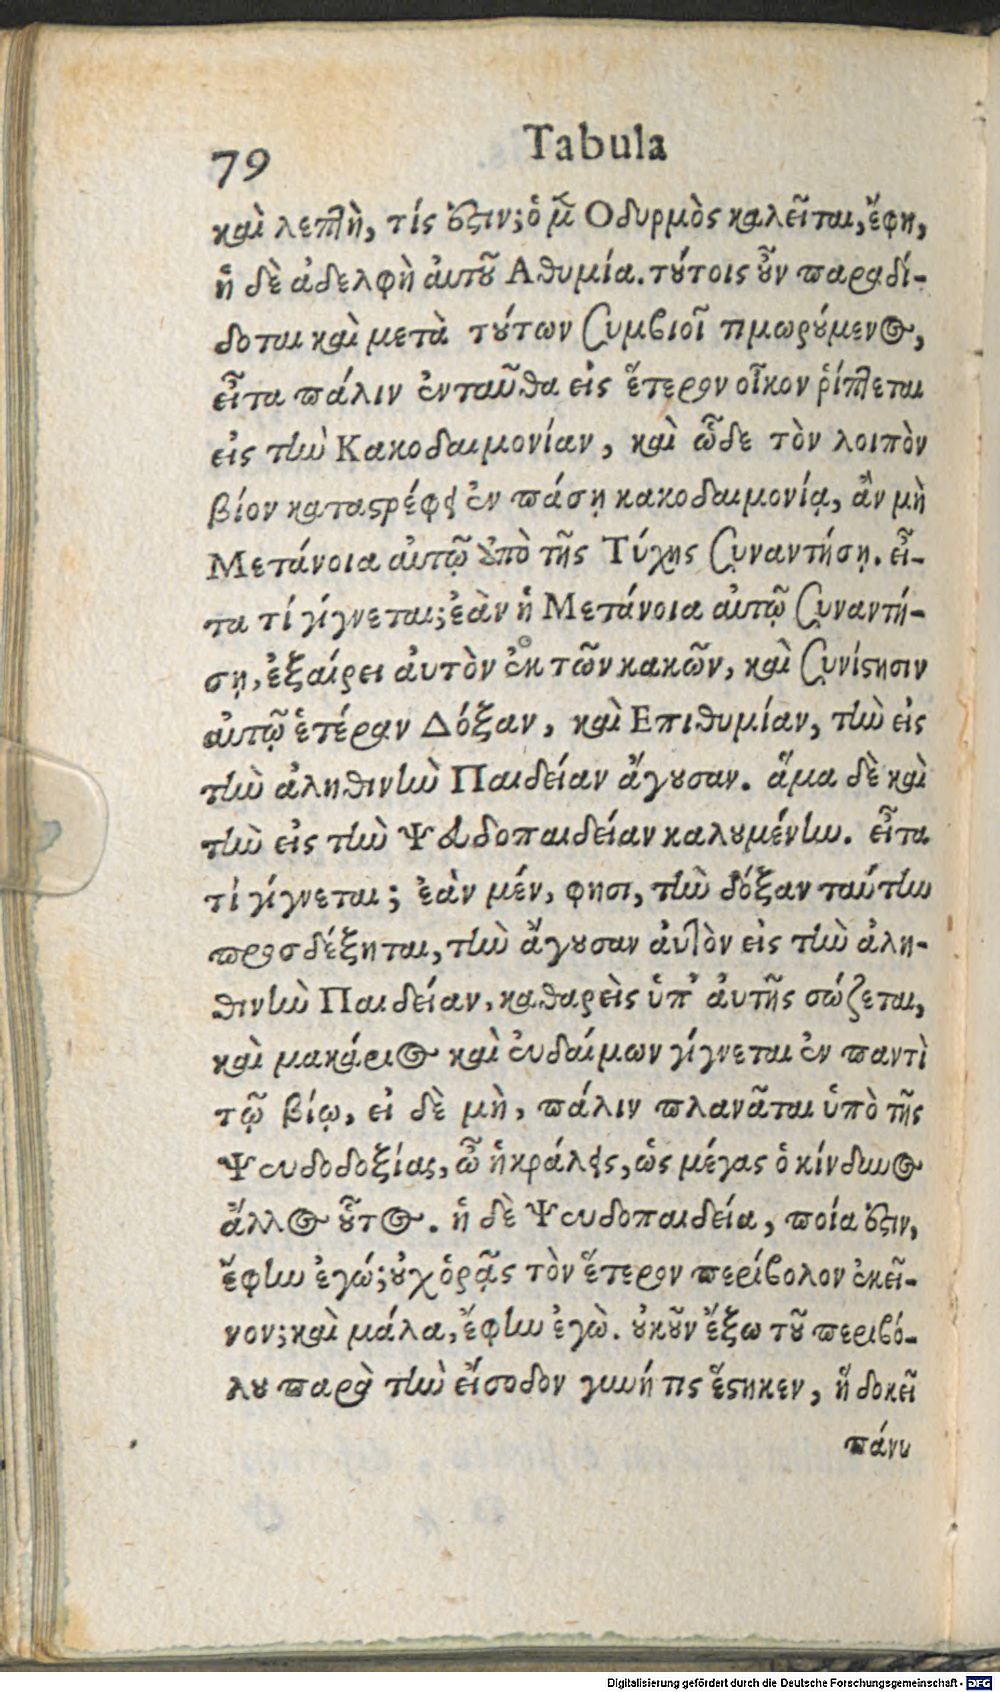 79 Tabula
καὶ λεπτὴ, τίς ἔστιν; ὁ μ̃ Οδυρμὸς καλεῖται, ἔφη,
ἡ δὲ ἀδελφὴ αὐτοῦ Αθυμία. τούτοις οὖν παραδί-
δοται καὶ μετὰ τούτων συμβιοῖ τιμωρούμενος,
εἶτα πάλιν ἐνταῦθα εἰς ἕτερον οἶκον ῥίπτεται
εἰς τὴν Κακοδαιμονίαν, καὶ ὧδε τὸν λοιπὸν
βίον καταστρέφει ἐν πάσῃ κακοδαιμονίᾳ, ἂν μὴ
Μετάνοια αὐτῷ ἀπὸ τῆς Τύχης συναντήσῃ. εἶ-
τα τί γίγνεται; ἐὰν ἡ Μετάνοια αὐτῷ συναντή-
σῃ, ἐξαίρει αὐτὸν ἐκ τῶν κακῶν, καὶ συνίστησιν
αὐτῷ ἑτέραν Δόξαν, καὶ Επιθυμίαν, τὴν εἰς
τὴν ἀληθινὴν Παιδείαν ἄγουσαν. ἅμα δὲ καὶ
τὴν εἰς τὴν Ψευδοπαιδείαν καλουμένην. εἶτα
τί γίγνεται; ἐὰν μέν, φησι, τὴν δόξαν ταύτην
προσδέξηται, τὴν ἄγουσαν αὐτὸν εἰς τὴν ἀλη-
θινὴν Παιδείαν, καθαρεὶς ὑπ' αὐτῆς σώζεται,
καὶ μακάριος καὶ εὐδαίμων γίγνεται ἐν παντὶ
τῷ βίῳ, εἰ δὲ μὴ, πάλιν πλανᾶται ὑπὸ τῆς
Ψευδοδοξίας, ὦ ἡκράλεις, ὡς μέγας ὁ κίνδυνος
ἄλλος οὗτος. ἡ δὲ Ψευδοπαιδεία, ποία ἔστιν,
ἔφην ἐγώ; οὐχ ὁρᾷς τὸν ἕτερον περίβολον ἐκεῖ-
νον; καὶ μάλα, ἔφην ἐγὼ. οὐκοῦν ἔξω τοῦ περιβό-
λου παρὰ τὴν εἴσοδον γυνή τις ἕστηκεν, ἣ δοκεῖ
πάνυ
Digitalisierung gefördert durch die Deutsche Forschungsgemeinschaft - DFG